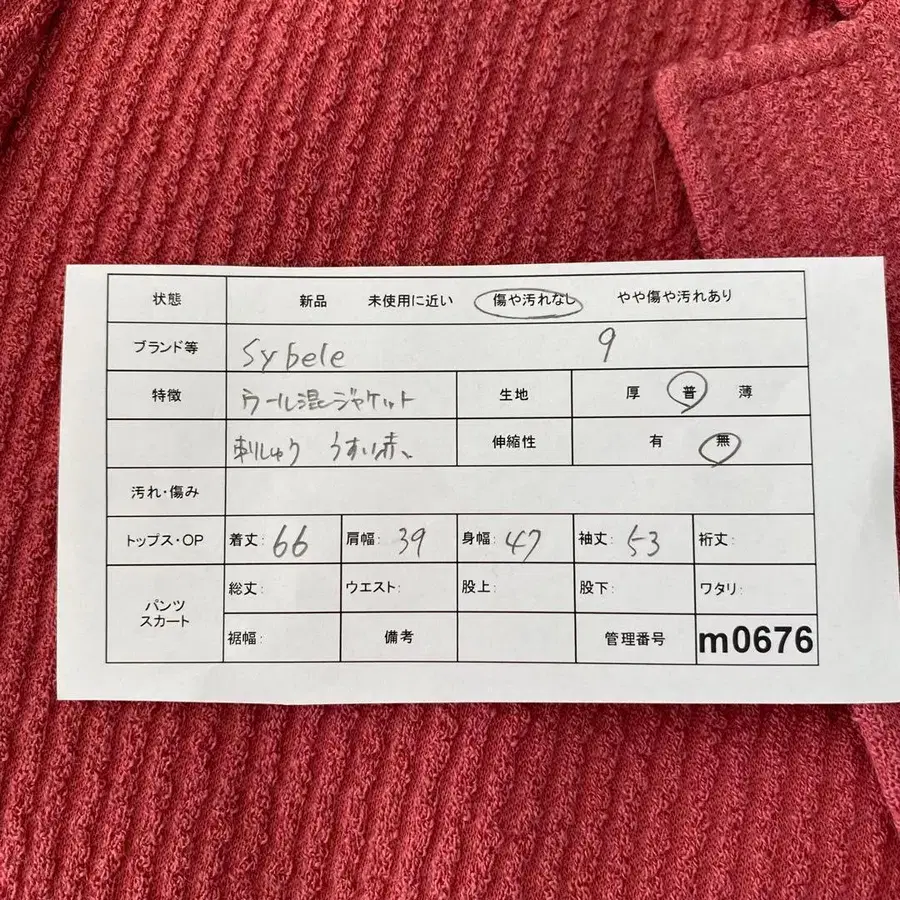 状態 新品 未使用に近い 傷や汚れなし やや傷や汚れあり
ブランド等 Sybele 9
特徴 ウール混ジャケット 生地 厚 普 薄
刺しゅう うすい赤 伸縮性 有 無
汚れ・傷み
トップス・OP 着丈: 66 肩幅: 39 身幅: 47 袖丈: 53 裄丈:
パンツ
スカート
総丈: ウエスト: 股上: 股下: ワタリ:
裾幅: 備考 管理番号 m0676